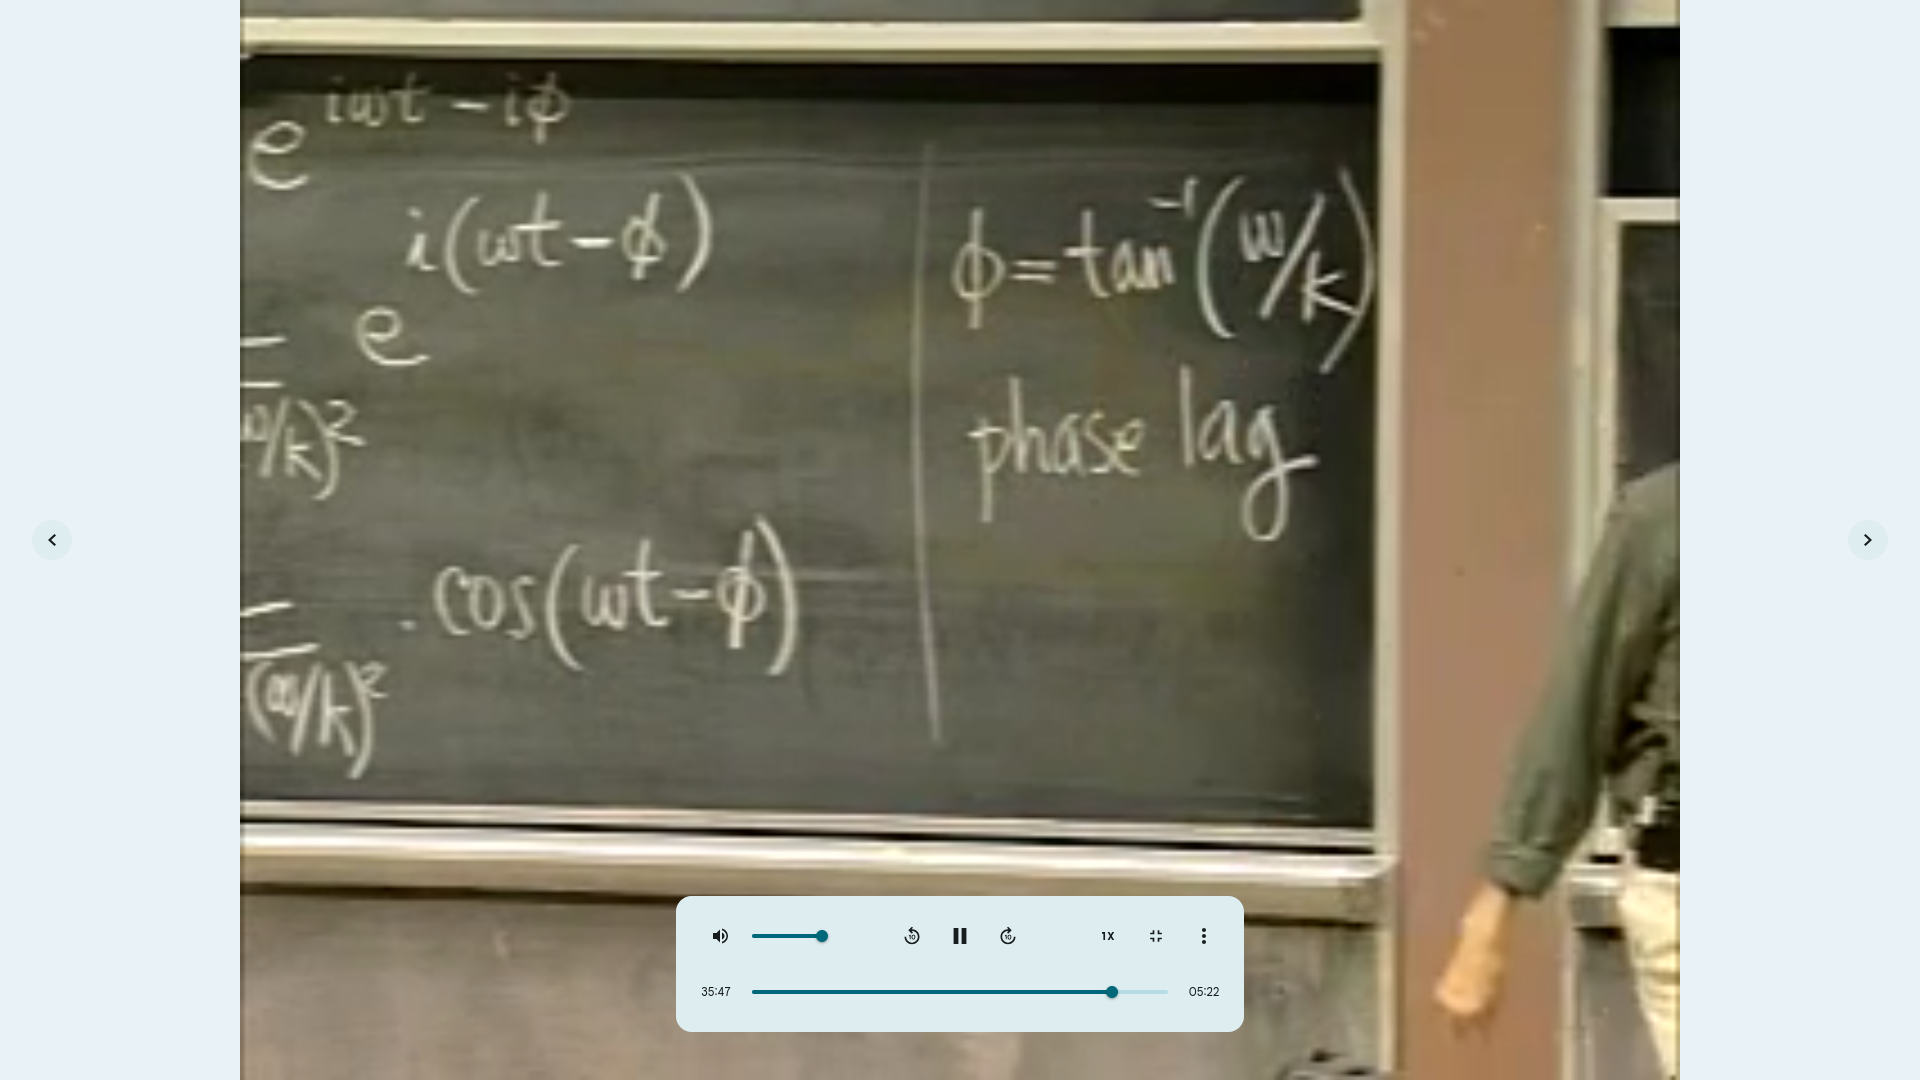 e^{iωt - iϕ}
e^{i(ωt - ϕ)}
ω/k)²
. cos(ωt - ϕ)
(ω/k)²
ϕ = tan⁻¹(ω/k)
phase lag
10
10
1X
35:47
05:22